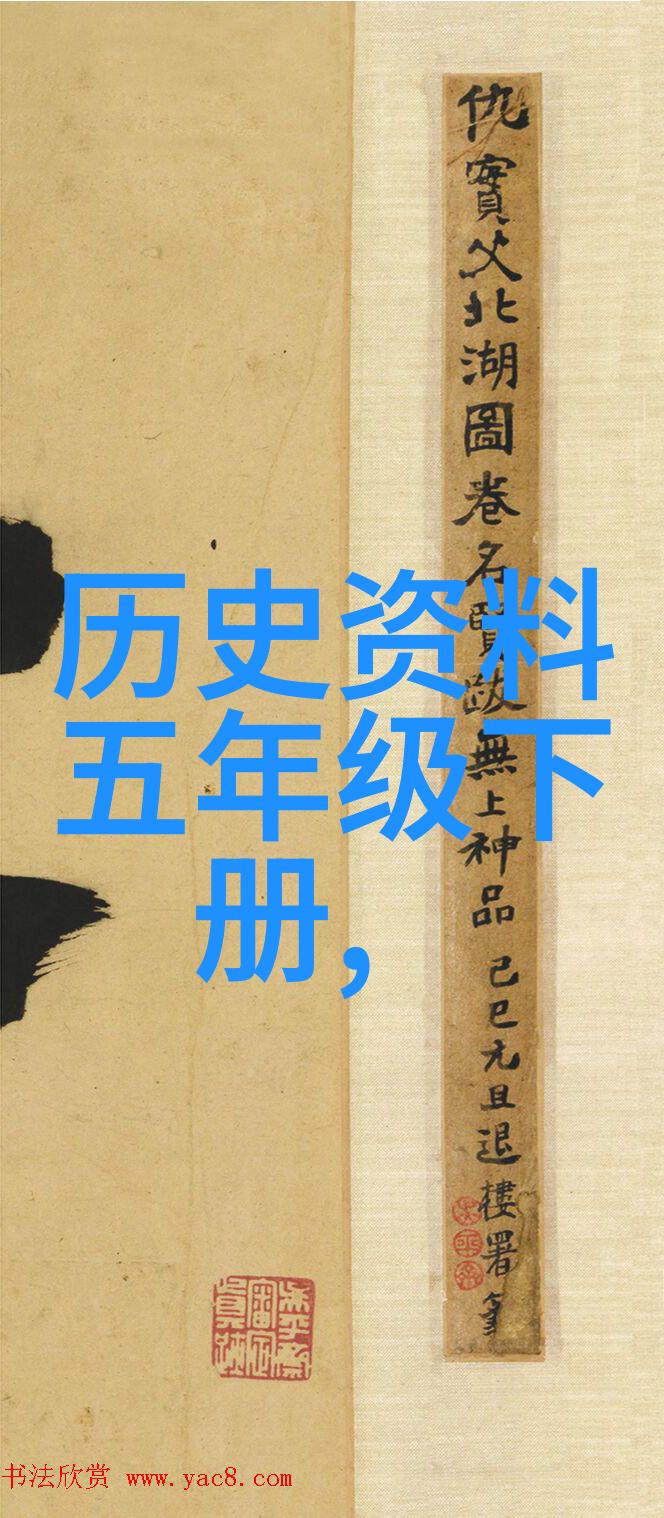 仇實父北湖圖卷名賢跋無上神品
己巳元旦退樓署
历史资料
五年级下
册,
书法欣赏 www.yac8.com